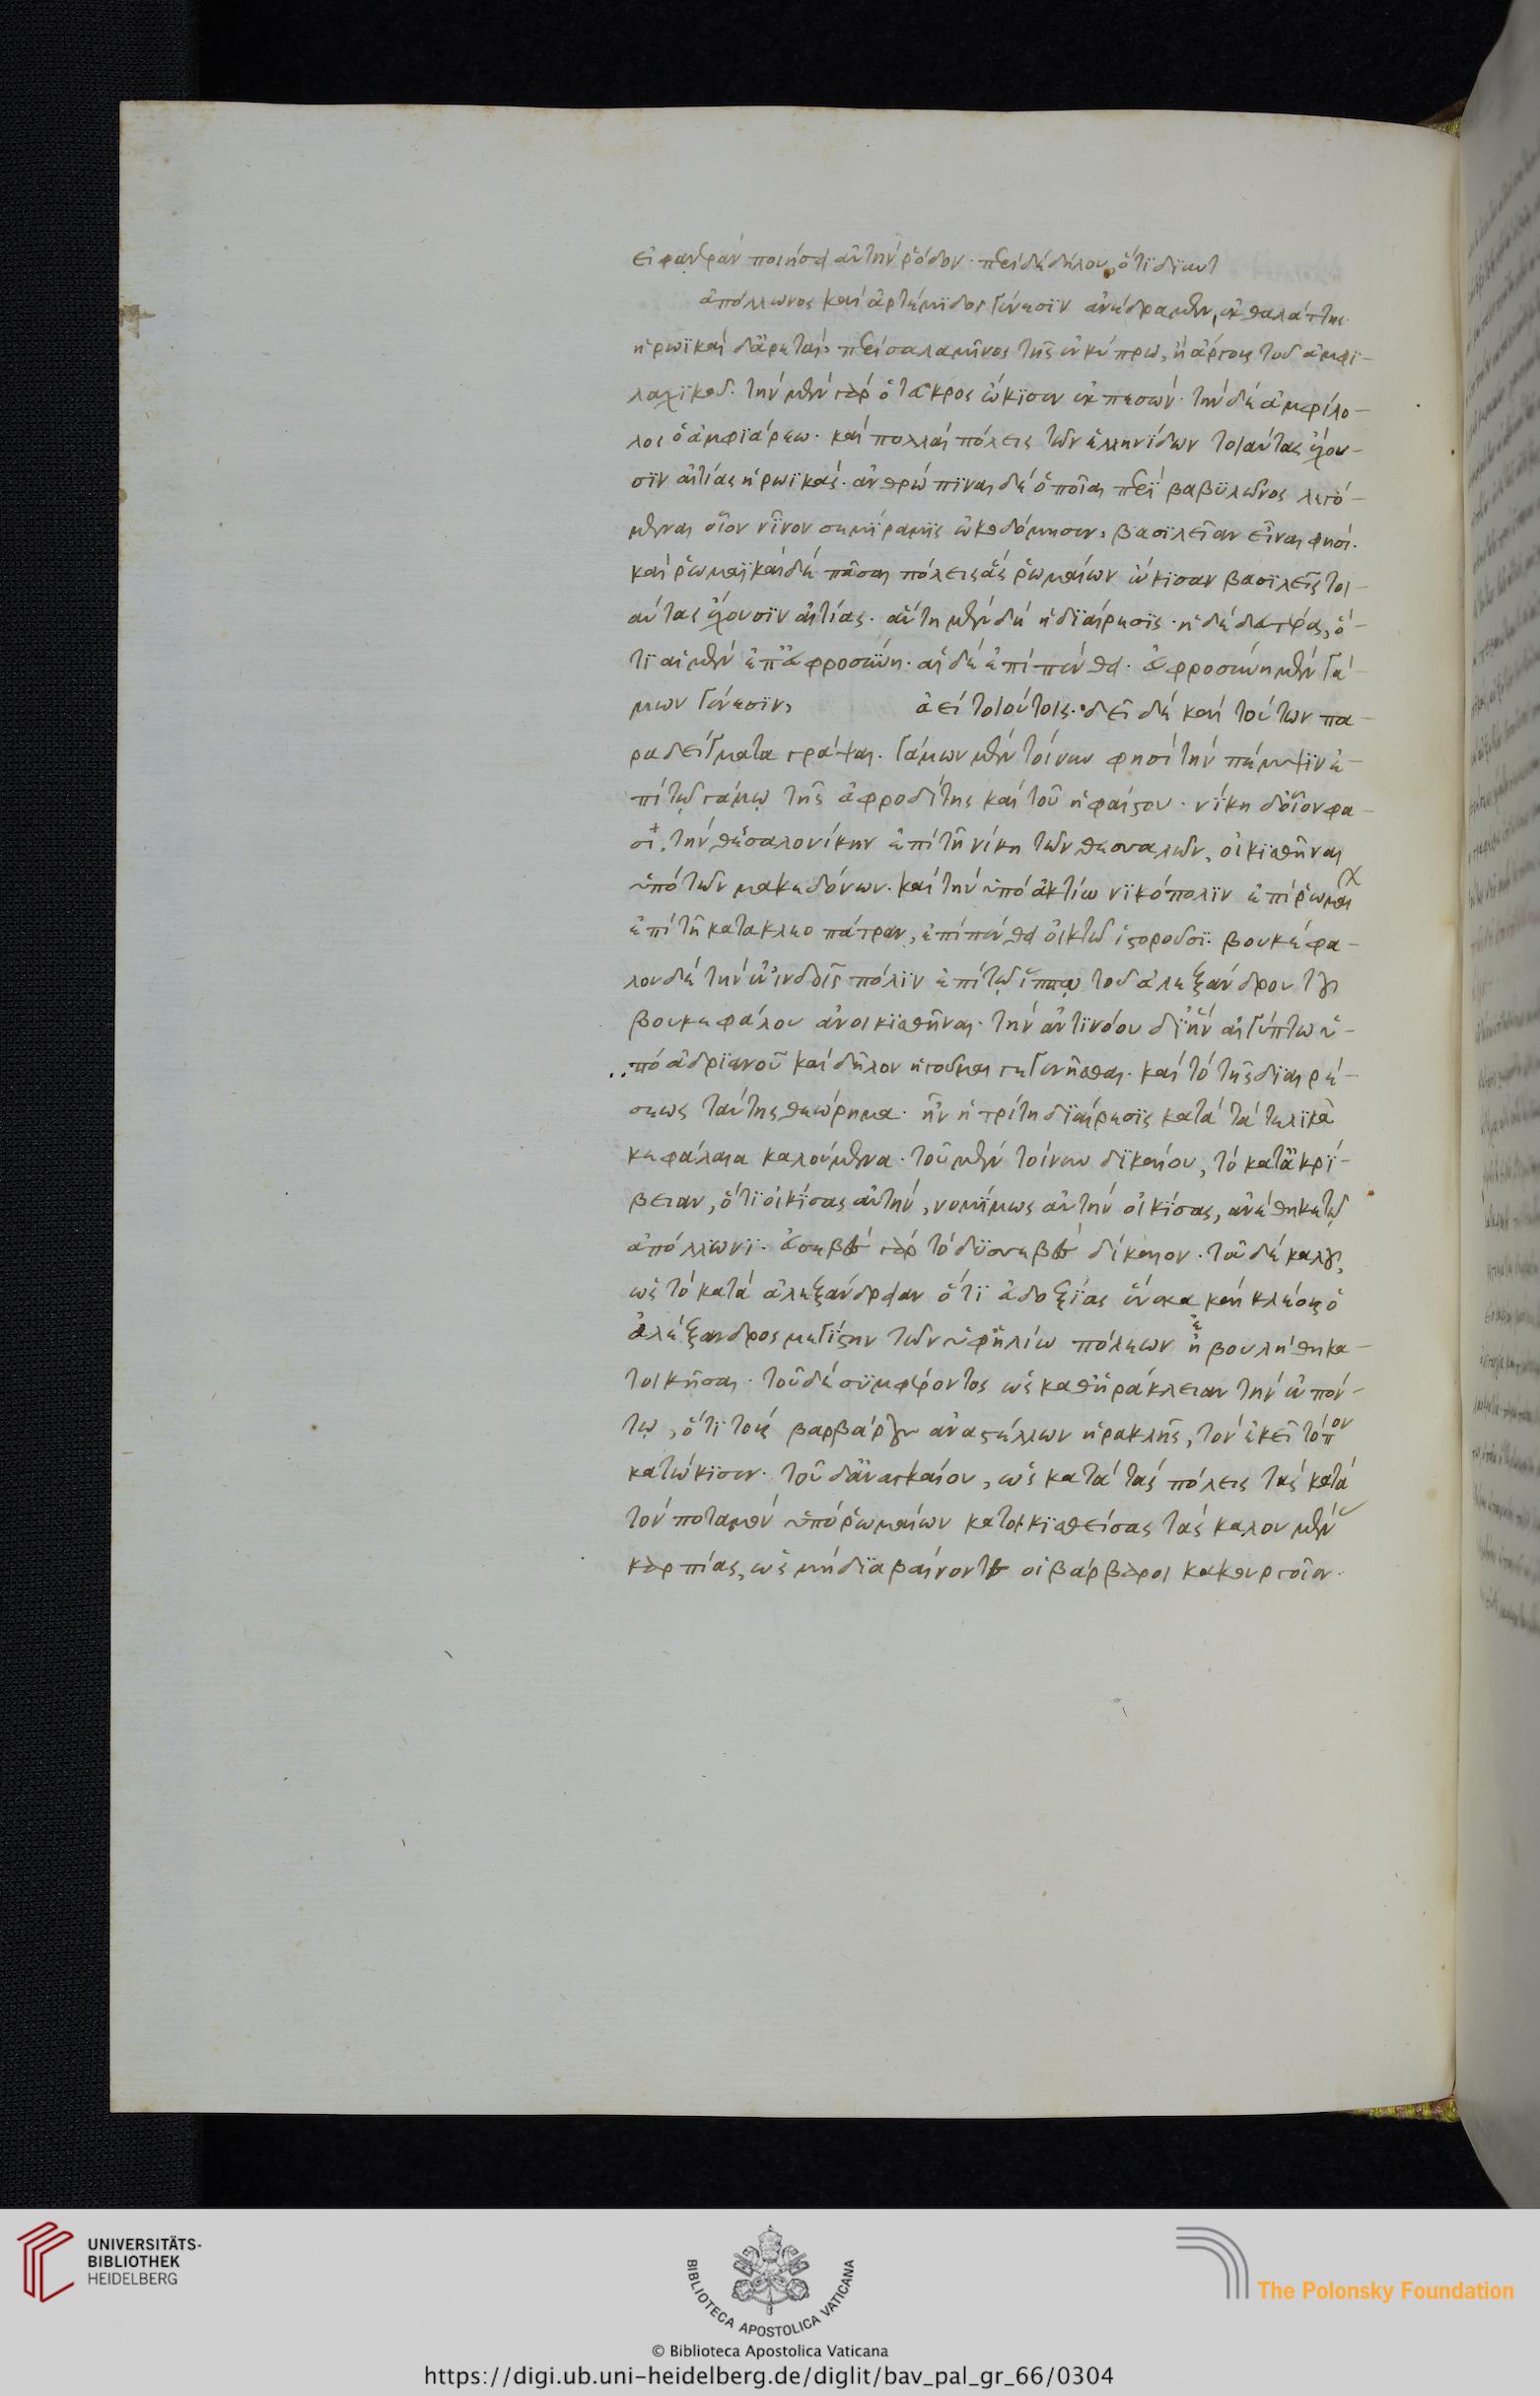 εἰ φανεράν ποιήσει αὐτήν ῥόδον· περί δέ δήλου, ὅτι διαυτ
ἀπόλλωνος καί ἀρτέμιδος γένεσιν ἀνέδραμεν, ἐκ θαλάττης
ἡρωϊκαί δ' ἀρεταί· περί σαλαμῖνος τῆς ἐν κύπρω, ἢ ἄργους τοῦ ἀμφι-
λοχικοῦ. τήν μέν γάρ ὁ τεῦκρος ᾤκισεν ἐκπεσών. τήν δέ ἀμφίλο-
χος ὁ ἀμφιάρεω. καί πολλαί πόλεις τῶν ἑλληνίδων τοιαύτας ἔχου-
σιν αἰτίας ἡρωϊκάς. ἀνθρώπιναι δέ ὁποῖαι περί βαβυλῶνος λεγό-
μεναι οἷον νῖνον σεμίραμις ᾠκοδόμησεν, βασίλειαν εἶναι φησί.
καί ῥωμαϊκαί δέ πᾶσαι πόλεις ἅς ῥωμαίων ᾤκισαν βασιλεῖς τοι-
αύτας ἔχουσιν αἰτίας. αὕτη μέν δή ἡ διαίρεσις. ἡ δέ δευτέρα, ὅ-
τι αἱ μέν ἐπ' εὐφροσύνη. αἱ δέ ἐπί πένθει. εὐφροσύνη μέν γά-
μων γένεσιν, ἀεί τοιούτοις. δεῖ δέ καί τούτων πα-
ραδείγματα γράψαι. γάμων μέν τοίνυν φησί τήν πέμψιν ἐ-
πί τῷ γάμῳ τῆς ἀφροδίτης καί τοῦ ἡφαίστου. νίκη δ' οἷον φα-
σι, τήν θεσσαλονίκην ἐπί τῆ νίκη τῶν θεσσαλῶν, οἰκισθῆναι
ὑπό τῶν μακεδόνων. καί τήν ὑπό ἀκτίω νικόπολιν ἐπί ῥωμαι
ἐπί τῆ κατακλεο πάτραν, ἐπί πένθει οἴκτω ἱστοροῦσι. βουκέφα-
λον δέ τήν ἐν ἰνδοῖς πόλιν ἐπί τῷ ἵππῳ τοῦ ἀλεξάνδρου τῷ
βουκεφάλου ἀνοικισθῆναι. τήν ἀντινόου δι' ἥν αἰγύπτω ὑ-
πό ἀδριανοῦ καί δῆλον ἡγοῦμαι γεγενῆσθαι. καί τό τῆς διαιρέ-
σεως ταύτης θεώρημα. ἦν ἡ τρίτη διαίρεσις κατά τά τελικά
κεφάλαια καλούμενα. τοῦ μέν τοίνυν δικαίου, τό κατ' ἀκρί-
βειαν, ὅτι οἰκίσας αὐτήν, νομίμως αὐτήν οἰκίσας, ἀνέθηκε τῷ
ἀπόλλωνι. εὐσεβές γάρ τό δυσσεβές δίκαιον. τοῦ δέ καλοῦ,
ὡς τό κατά ἀλεξάνδρειαν ὅτι εὐδοξίας ἕνεκα καί κλέους ὁ
ἀλέξανδρος μεγίστην τῶν ὑφ' ἡλίω πόλεων ἠβουλήθη κα-
τοικῆσαι. τοῦ δέ συμφέροντος ὡς καθ' ἡράκλειαν τήν ἐν πόν-
τῳ, ὅτι τούς βαρβάρους ἀναστέλλων ἡρακλῆς, τόν ἐκεῖ τόπον
κατῴκισεν. τοῦ δ' ἀναγκαίου, ὡς κατά τάς πόλεις τάς κατά
τόν ποταμόν ὑπό ῥωμαίων κατοικισθείσας τάς καλουμέν
καρπίας, ὡς μή διαβαίνοντες οἱ βάρβαροι κακουργοῖεν.
UNIVERSITÄTS-
BIBLIOTHEK
HEIDELBERG
BIBLIOTECA APOSTOLICA VATICANA
The Polonsky Foundation
© Biblioteca Apostolica Vaticana
https://digi.ub.uni-heidelberg.de/diglit/bav_pal_gr_66/0304